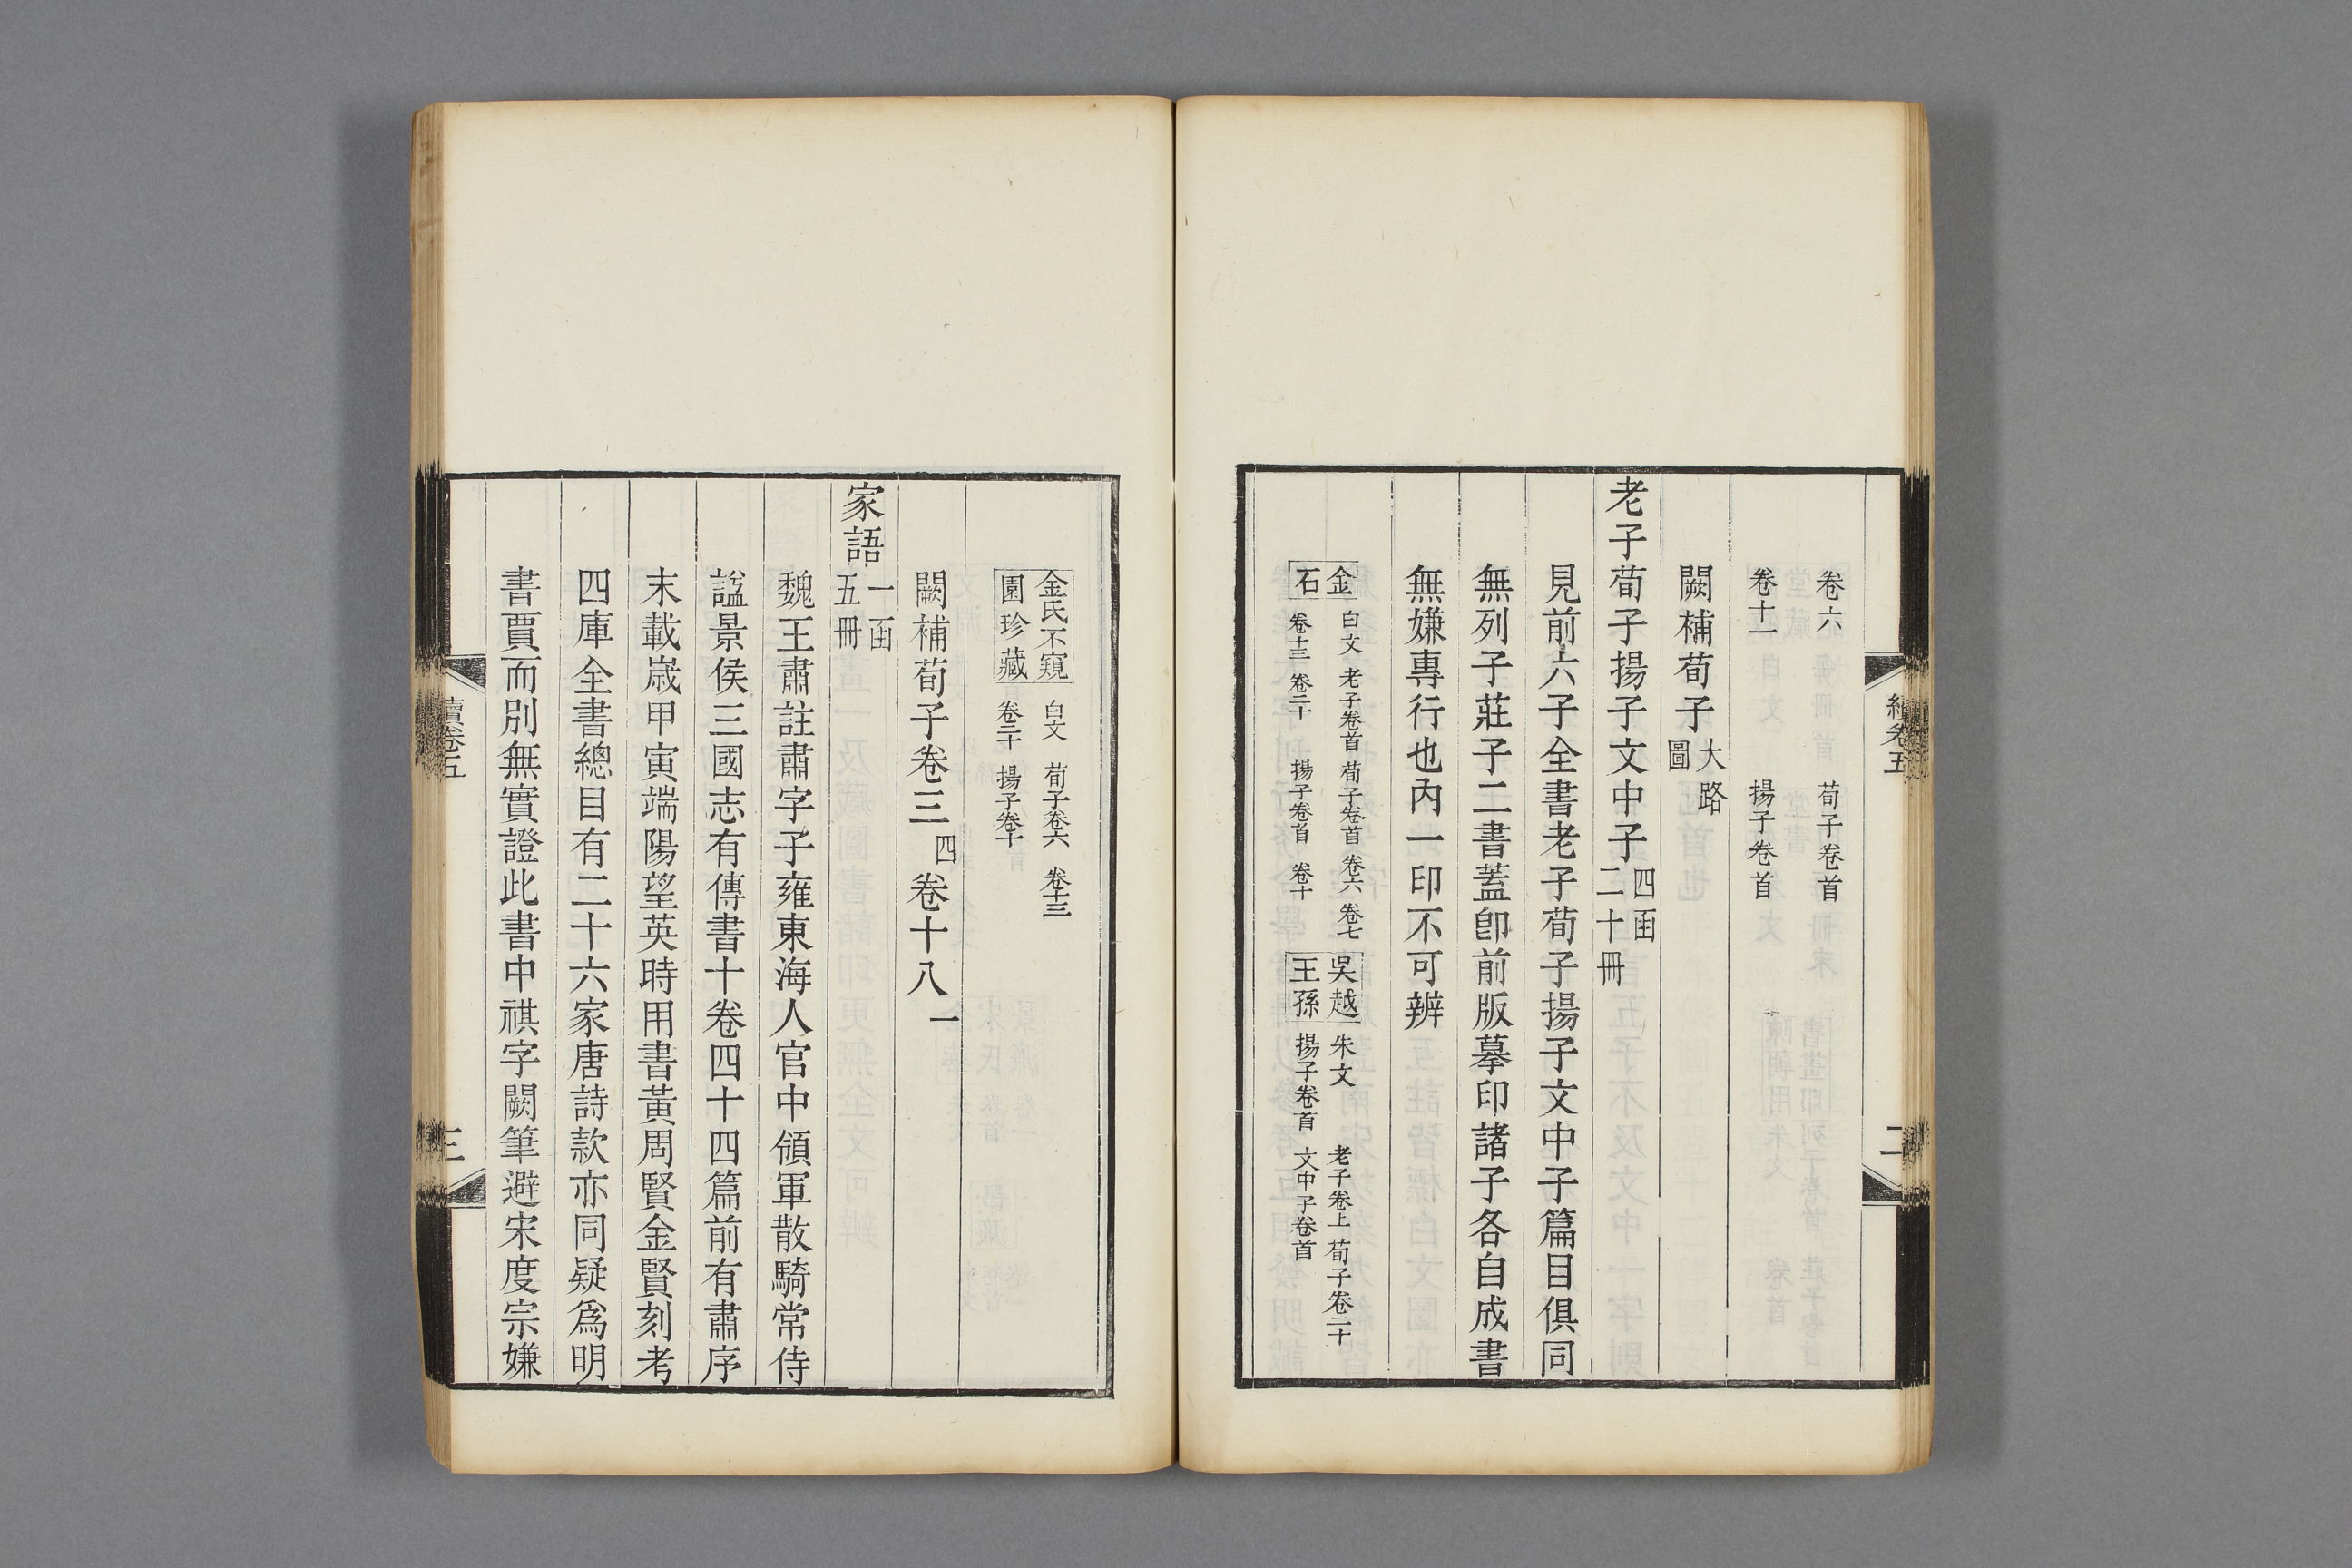 卷六　荀子卷首
卷十一　揚子卷首
闕補荀子大路圖
老子荀子揚子文中子四函二十冊
見前六子全書老子荀子揚子文中子篇目俱同
無列子莊子二書蓋卽前版摹印諸子各自成書
無嫌專行也內一印不可辨
金石　白文　老子卷首　荀子卷首　卷六　卷七　卷十三　卷二十　揚子卷首　卷十　吳越王孫　朱文　老子卷上　荀子卷二十　揚子卷首　文中子卷首
續卷五　二
金氏不窺園珍藏　白文　荀子卷六　卷十三　卷二十　揚子卷十
闕補荀子卷三四　卷十八一
家語一函五冊
魏王肅註肅字子雍東海人官中領軍散騎常侍
諡景侯三國志有傳書十卷四十四篇前有肅序
末載嵗甲寅端陽望英時用書黃周賢金賢刻考
四庫全書總目有二十六家唐詩款亦同疑爲明
書賈而別無實證此書中祺字闕筆避宋度宗嫌
續卷五　三